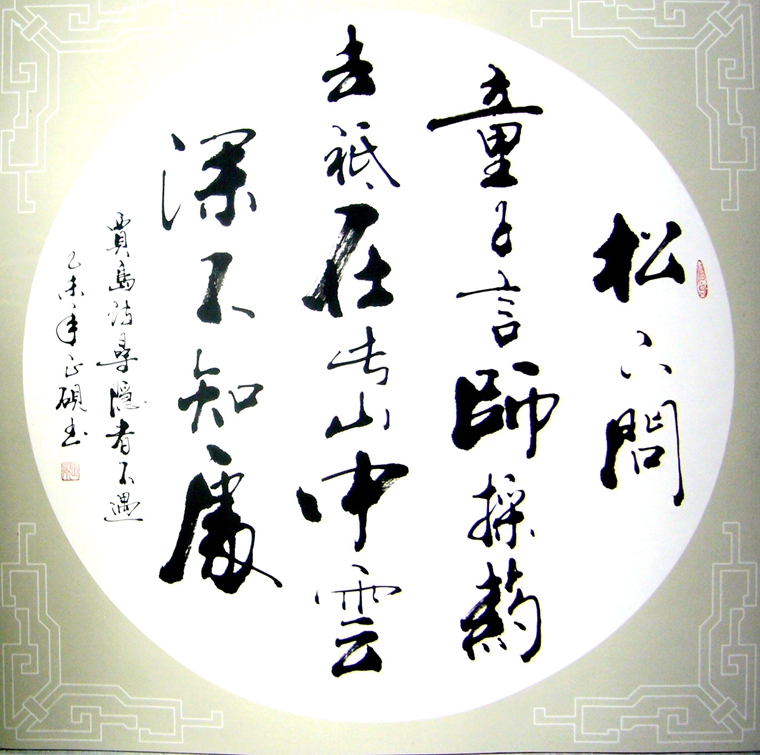 松下問
童子言師採药
去祗在此山中雲
深不知處
賈島詩尋隱者不遇
乙未年正硯书